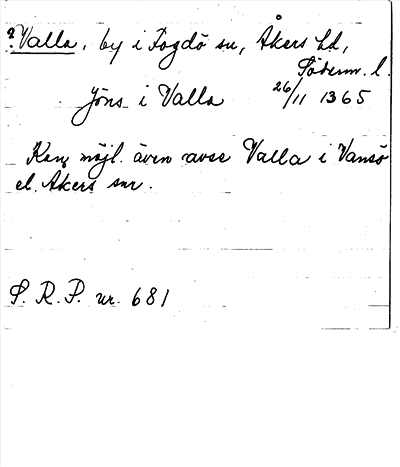 ? Valla, by i Fogdö sn, Åkers hd,
Söderm. l.
Jöns i Valla 26/11 1365
Kan möjl. även avse Valla i Vansö
el. Åkers snr.
S. R. P. nr. 681